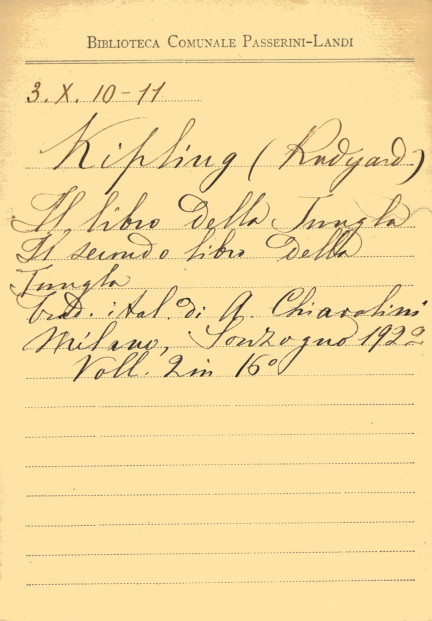 BIBLIOTECA COMUNALE PASSERINI-LANDI
3. X. 10-11
Kipling (Rudyard)
Il libro della Jungla
Il secondo libro della
Jungla
trad. ital. di A. Chiarolini
Milano, Sonzogno 1922
Voll. 2 in 16°